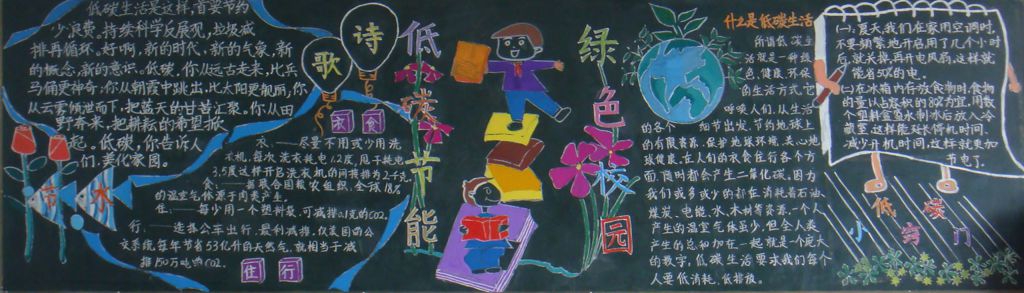 低碳生活是这样，首要节约
少浪费，持续科学发展观，垃圾减
排再循环，好啊，新的时代，新的气象，新
的概念，新的意识。低碳，你从远古走来，比兵
马俑更神奇；你从朝霞中跳出，比太阳更靓丽；你
从云霄倾泄而下，把蓝天的甘苦汇聚。你从田
野奔来，把耕耘的希望掀
起。低碳，你告诉人
们，美化家园。
诗
歌
节
水
衣
食
衣：——尽量不用或少用洗
衣机，每次洗衣耗电1.2度，甩干耗电
3.5度这样开启洗衣机的间接排为2.千克
食：——据联合国粮农组织，全球18%
的温室气体源于肉类产生。
住：——每少用一个塑料袋，可减排0.1克的CO2。
行：——连接公车出行，最利减排，仅美国的公
交系统每年节省53亿升的天然气，就相当于减
排150万吨的CO2。
住
行
低碳节能
绿色校园
什么是低碳生活
所谓低碳生
活就是一种低
色，健康，环保
的生活方式，它
呼唤人们，从生活
的各个 细节出发，节约地球上
的有限资源，保护地球环境，关心地
球健康。在人们的衣食住行各个方
面，随时都会产生二氧化碳。因为
我们或多或少的都在消耗着石油
煤炭、电能、水、木材等资源。一个人
产生的温室气体虽少，但全人类
产生的总和加在一起就是个庞大
的数字，低碳生活要求我们每个
人要低消耗，低排放。
(一、夏天，我们在家用空调时，
不要频繁地开启用了几个小时
后，就关掉，再开电风扇，这样就
能省50%的电。
(二)在冰箱内存放食物时，食物
的量以占容积的80%为宜，用数
个塑料盒盛水制冰后放入冷
藏室，这样能延长停机时间，
减少开机时间，这样就更加
节电了。
小
低
窍
碳
门